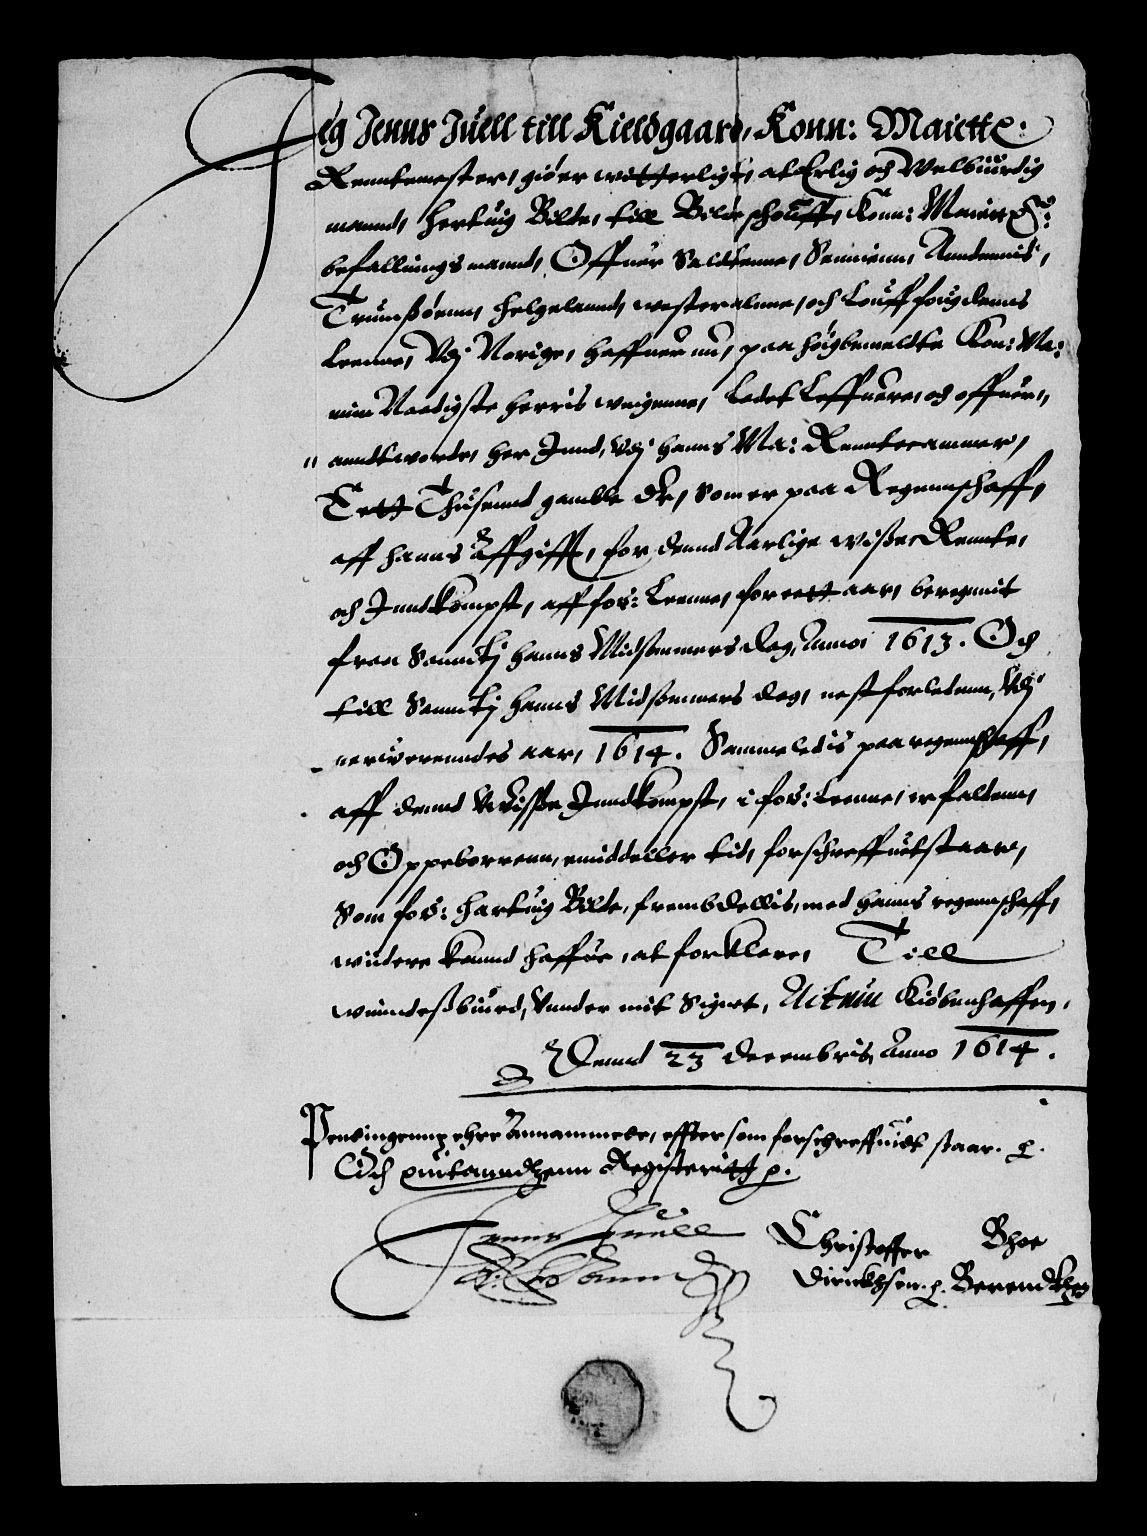 Jeg Jenns Juell till Kieldgaard, Konn: Maiettz:
Renntemester, giøer witterligt, at Erlig och Welbiurdig
mannd, Hertuig Bilde, till Bildeschouff, Konn: Maiettz:
befallningsmannd, Offuer Saldtenne, Sennienn, Anndennis,
Trumsøenn, Helgelannd, westeralnne, och Louffougdenns
Leenne, Vdj Norige, Haffuer nu, paa høigbemeldte Kon: Ma:
min Naadigste Herris weigenne, Ladet Leffuere, och offuer„
„ anndtworde, her Innd, Vdj hanns Ma: Renntecammer,
Tett Thusennd gamble dlr, Som er paa Regennschaff,
aff hanns Affgifft, for dennd Aarlige wisse Rennte,
och Inndkompst, aff for: Leenne, for eett aar, beregnnit
fraa Sannctj Hanns Midsommers dag, Annoi 1613. Och
till Sannctj Hanns Midsommers dag, nest forledenn, Vdj
nerwerenndes aar, 1614. Sammeledis paa regennschaff,
aff dennd Wuisse Inndkompst, i for: Leenne, er faldenn,
och Oppeborrenn, emiddeller tid, forschreffuitstaar,
Som for: Hartuig Bilde, frembdellis, med hanns regennschaff,
widere kannd haffue, at forklare, Till
winndesbiurd, Vnnder mit Signet, Actum Kiøbenhaffen,
Dennd 23 Decembris, Anno 1614.
Pendingenn ehre Annammede, effter som forschreffuidt staar.
Och quitanndtzenn Registeritt
Jenns Juell
Christoffer Bhoe
Dirickhsen. Berendtzen